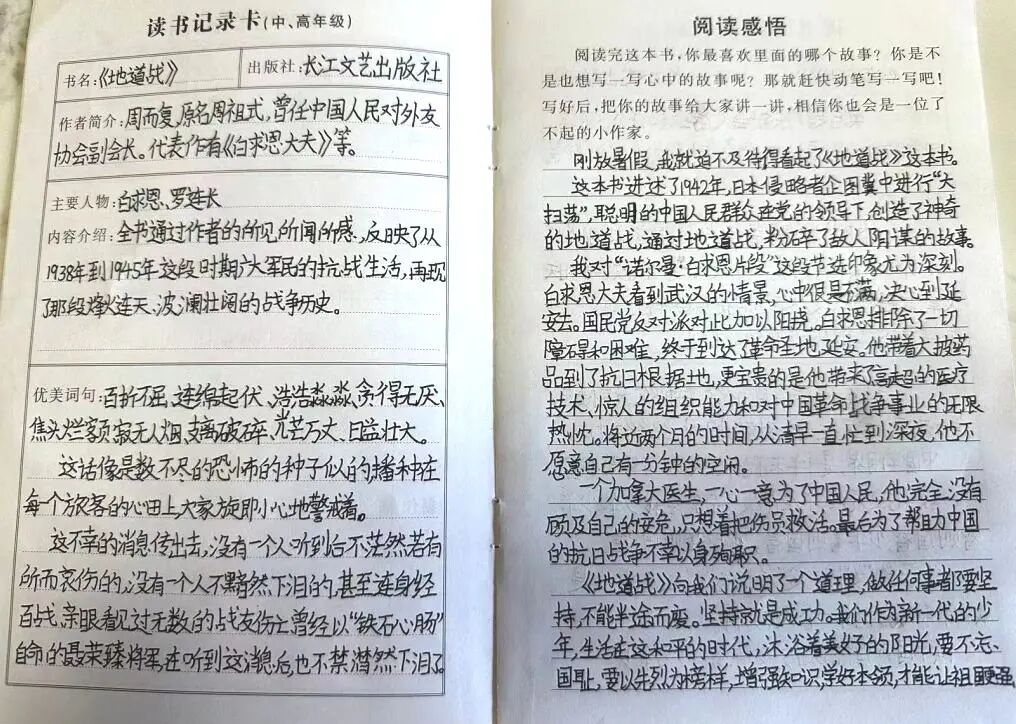 读书记录卡(中、高年级)
书名:《地道战》
出版社:长江文艺出版社
作者简介:周而复,原名周祖式,曾任中国人民对外友
协会副会长。代表作有《白求恩大夫》等。
主要人物:白求恩、罗连长
内容介绍:全书通过作者的所见所闻所感,反映了从
1938年到1945年这段时期六大军民的抗战生活,再现
了那段烽火连天、波澜壮阔的战争历史。
优美词句:百折不屈、连绵起伏、浩浩淼淼、贪得无厌、
焦头烂额、寂无人烟、支离破碎、光芒万丈、日益壮大。
这话像是数不尽的恐怖的种子似的,播种在
每个旅客的心田上,大家旋即小心地警戒着。
这不幸的消息传出去,没有一个人听到后不茫然若有
所而哀伤的,没有一个人不黯然下泪的,甚至连身经
百战、亲眼看见过无数的战友伤亡曾经以“铁石心肠”
自命的聂荣臻将军,在听到这消息后也不禁潸然下泪了。
阅读感悟
阅读完这本书,你最喜欢里面的哪个故事?你是不
是也想写一写心中的故事呢?那就赶快动笔写一写吧!
写好后,把你的故事给大家讲一讲,相信你也会是一位了
不起的小作家。
刚放暑假,我就迫不及待得看起了《地道战》这本书。
这本书讲述了1942年,日本侵略者企图冀中进行“大
扫荡”,聪明的中国人民群众在党的领导下,创造了神奇
的地道战,通过地道战,粉碎了敌人阳谋的故事。
我对“诺尔曼·白求恩片段”这段节选印象尤为深刻。
白求恩大夫看到武汉的情景,心中很是不满,决心到延
安去。国民党反对派对此加以阻挠。白求恩排除了一切
障碍和困难,终于到达了革命圣地延安。他带着大批药
品到了抗日根据地,更宝贵的是他带来了高超的医疗
技术、惊人的组织能力和对中国革命战争事业的无限
热忱。将近两个月的时间,从清早一直忙到深夜,他不
愿意自己有一分钟的空闲。
一个加拿大医生,一心一意为了中国人民,他完全没有
顾及自己的安危,只想着把伤员救活。最后为了帮助中国
的抗日战争不幸以身殉职。
《地道战》向我们说明了一个道理,做任何事者都要坚
持,不能半途而废。坚持就是成功。我们作为新一代的少
年,生活在这和平的时代,沐浴着美好的阳光,要不忘
国耻,要以先烈为榜样,增强知识,学好本领,才能让祖国更强